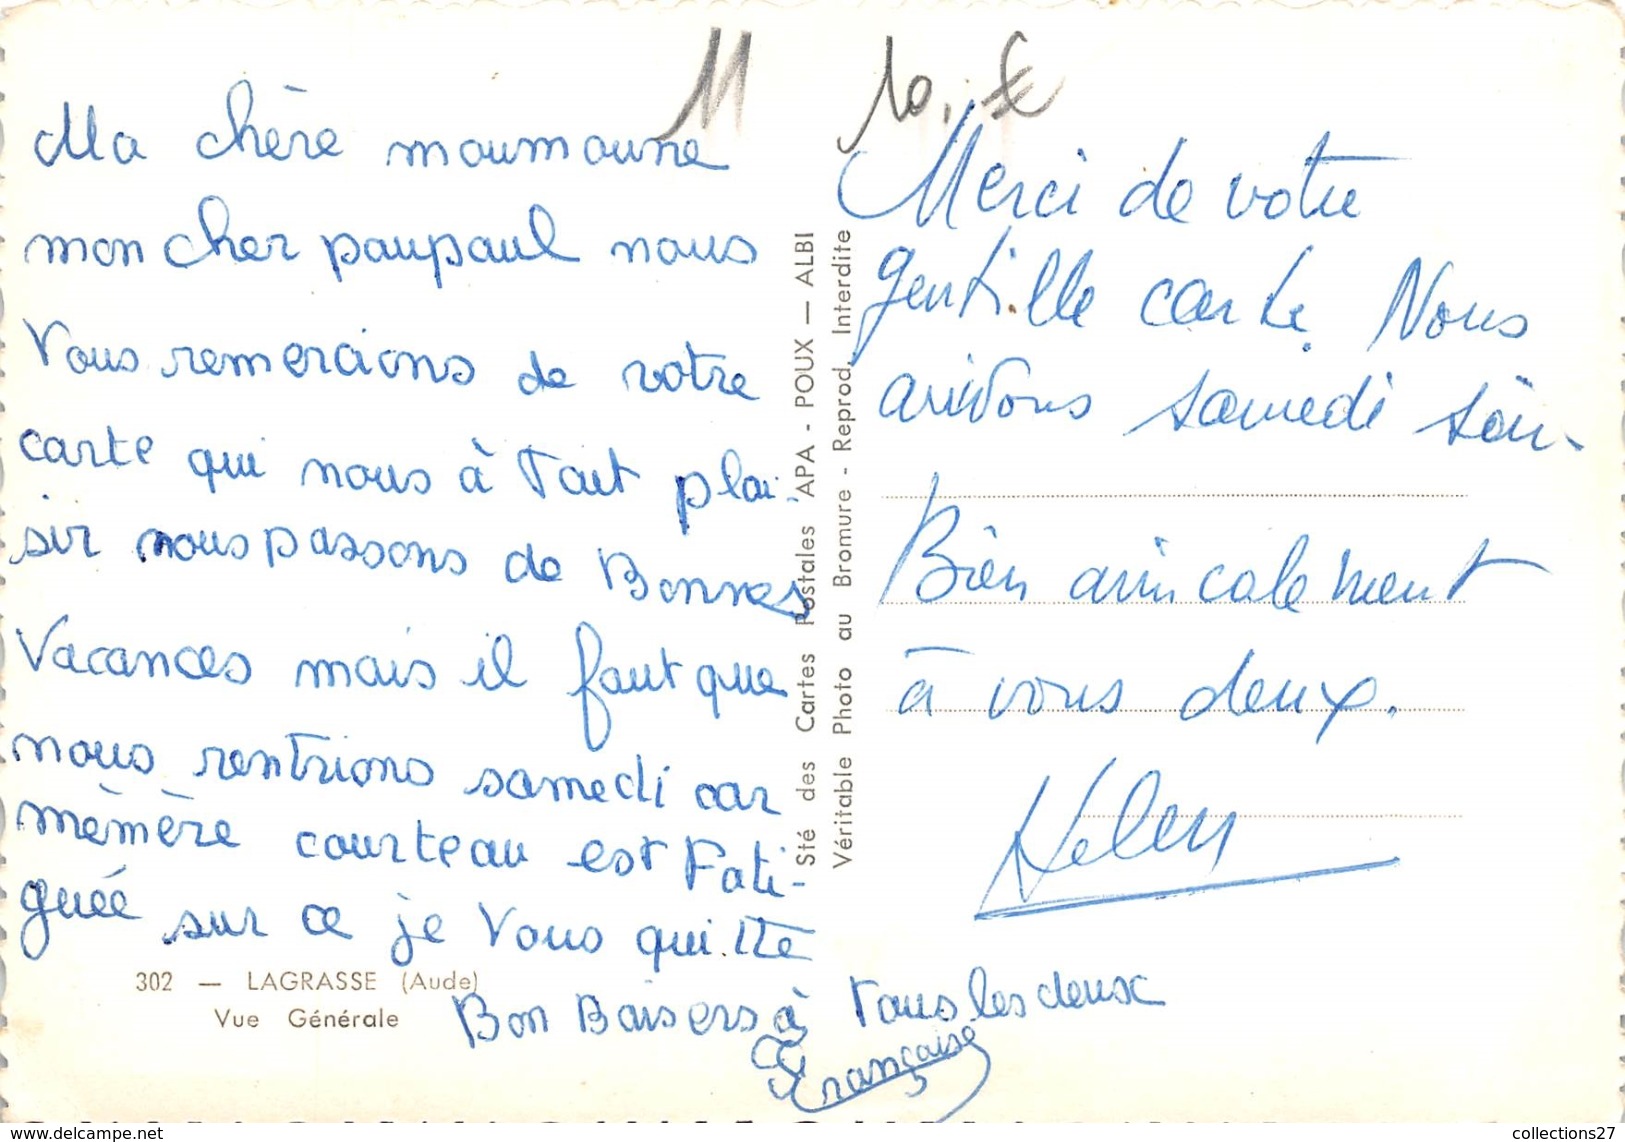 11
10.€
Ma chère moumoune
mon cher paupaul nous
Vous remercions de votre
carte qui nous à Tait plai-
sir nous passons de Bonnes
Vacances mais il faut que
nous rentrions samedi car
mèmère courteau est Fati-
guée sur ce je Vous quitte
Bon Baisers à Tous les deux
Françaisé
302 — LAGRASSE (Aude)
Vue Générale
Sté des Cartes Postales APA - POUX — ALBI
Véritable Photo au Bromure - Reprod. Interdite
Merci de votre
gentille carte. Nous
arrivons samedi soir.
Bien amicalement
à vous deux.
Helen
collections27